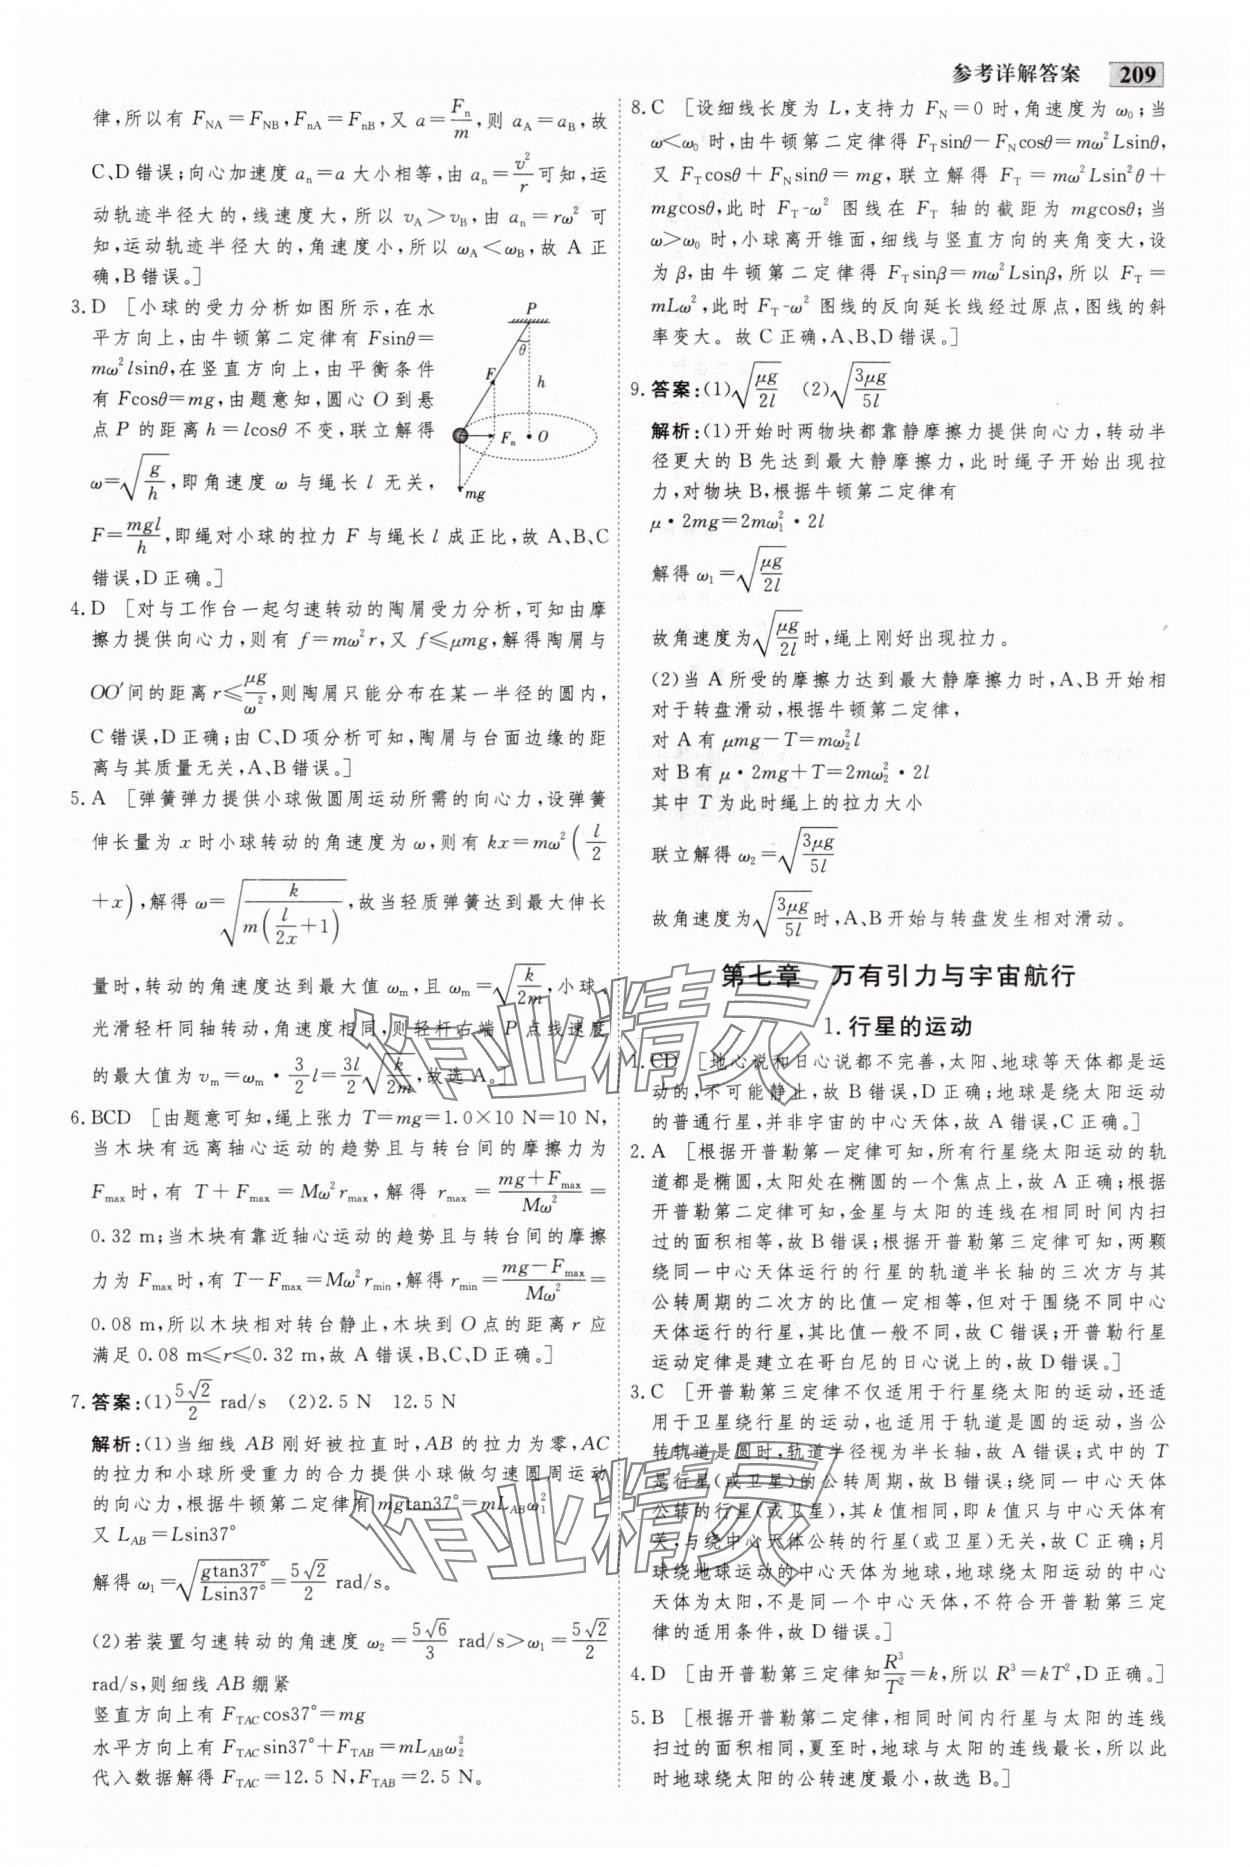 参考详解答案 209
律,所以有 F_NA=F_NB,F_nA=F_nB,又 a=F_n/m,则 a_A=a_B,故
C、D错误;向心加速度 a_n=a 大小相等,由 a_n=v²/r 可知,运
动轨迹半径大的,线速度大,所以 v_A>v_B,由 a_n=rω² 可
知,运动轨迹半径大的,角速度小,所以 ω_A<ω_B,故 A 正
确,B错误。]
3. D [小球的受力分析如图所示,在水
平方向上,由牛顿第二定律有 Fsinθ=
mω²lsinθ,在竖直方向上,由平衡条件
有 Fcosθ=mg,由题意知,圆心 O 到悬
点 P 的距离 h=lcosθ 不变,联立解得
ω=√(g/h),即角速度 ω 与绳长 l 无关,
F=mgl/h,即绳对小球的拉力 F 与绳长 l 成正比,故 A、B、C
错误,D正确。]
P
θ
F
h
F_n
O
mg
4. D [对与工作台一起匀速转动的陶屑受力分析,可知由摩
擦力提供向心力,则有 f=mω²r,又 f≤μmg,解得陶屑与
OO′间的距离 r≤μg/ω²,则陶屑只能分布在某一半径的圆内,
C错误,D正确;由C、D项分析可知,陶屑与台面边缘的距
离与其质量无关,A、B错误。]
5. A [弹簧弹力提供小球做圆周运动所需的向心力,设弹簧
伸长量为 x 时小球转动的角速度为 ω,则有 kx=mω²(l/2
+x),解得 ω=√(k/(m(l/2x+1))),故当轻质弹簧达到最大伸长
量时,转动角速度达到最大值 ω_m,且 ω_m=√(k/2m),小球、
光滑轻杆同轴转动,角速度相同,则轻杆右端 P 点线速度
的最大值为 v_m=ω_m·3/2l=3l/2√(k/2m),故选 A。]
6. BCD [由题意可知,绳上张力 T=mg=1.0×10 N=10 N,
当木块有远离轴心运动的趋势且与转台间的摩擦力为
F_max时,有 T+F_max=Mω²r_max,解得 r_max=(mg+F_max)/Mω²=
0.32 m;当木块有靠近轴心运动的趋势且与转台间的摩擦
力为 F_max时,有 T-F_max=Mω²r_min,解得 r_min=(mg-F_max)/Mω²=
0.08 m,所以木块相对转台静止,木块到 O 点的距离 r 应
满足 0.08 m≤r≤0.32 m,故 A 错误,B、C、D正确。]
7. 答案:(1)5√2/2 rad/s (2)2.5 N 12.5 N
解析:(1)当细线 AB 刚好被拉直时,AB 的拉力为零,AC
的拉力和小球所受重力的合力提供小球做匀速圆周运动
的向心力,根据牛顿第二定律有 mgtan37°=mL_ABω₁²
又 L_AB=Lsin37°
解得 ω₁=√(gtan37°/Lsin37°)=5√2/2 rad/s。
(2)若装置匀速转动的角速度 ω₂=5√6/3 rad/s>ω₁=5√2/2
rad/s,则细线 AB 绷紧
竖直方向上有 F_TAC cos37°=mg
水平方向上有 F_TAC sin37°+F_TAB=mL_ABω₂²
代入数据解得 F_TAC=12.5 N,F_TAB=2.5 N。
8. C [设细线长度为 L,支持力 F_N=0 时,角速度为 ω₀;当
ω<ω₀ 时,由牛顿第二定律得 F_T sinθ-F_N cosθ=mω²Lsinθ,
又 F_T cosθ+F_N sinθ=mg,联立解得 F_T=mω²Lsin²θ+
mgcosθ,此时 F_T-ω² 图线在 F_T 轴的截距为 mgcosθ;当
ω>ω₀ 时,小球离开锥面,细线与竖直方向的夹角变大,设
为 β,由牛顿第二定律得 F_T sinβ=mω²Lsinβ,所以 F_T=
mLω²,此时 F_T-ω² 图线的反向延长线经过原点,图线的斜
率变大。故 C 正确,A、B、D错误。]
9. 答案:(1)√(μg/2l) (2)√(3μg/5l)
解析:(1)开始时两物块都靠静摩擦力提供向心力,转动半
径更大的 B 先达到最大静摩擦力,此时绳子开始出现拉
力,对物块 B,根据牛顿第二定律有
μ·2mg=2mω₁²·2l
解得 ω₁=√(μg/2l)
故角速度为√(μg/2l)时,绳上刚好出现拉力。
(2)当 A 所受的摩擦力达到最大静摩擦力时,A、B开始相
对于转盘滑动,根据牛顿第二定律,
对 A 有 μmg-T=mω₂²l
对 B 有 μ·2mg+T=2mω₂²·2l
其中 T 为此时绳上的拉力大小
联立解得 ω₂=√(3μg/5l)
故角速度为√(3μg/5l)时,A、B开始与转盘发生相对滑动。
第七章 万有引力与宇宙航行
1.行星的运动
1. CD [地心说和日心说都不完善,太阳、地球等天体都是运
动的,不可能静止,故 B 错误,D 正确;地球是绕太阳运动
的普通行星,并非宇宙的中心天体,故A错误,C正确。]
2. A [根据开普勒第一定律可知,所有行星绕太阳运动的轨
道都是椭圆,太阳处在椭圆的一个焦点上,故 A 正确;根据
开普勒第二定律可知,金星与太阳的连线在相同时间内扫
过的面积相等,故 B 错误;根据开普勒第三定律可知,两颗
绕同一中心天体运行的行星的轨道半长轴的三次方与其
公转周期的二次方的比值一定相等,但对于围绕不同中心
天体运行的行星,其比值一般不同,故 C 错误;开普勒行星
运动定律是建立在哥白尼的日心说上的,故 D 错误。]
3. C [开普勒第三定律不仅适用于行星绕太阳的运动,还适
用于卫星绕行星的运动,也适用于轨道是圆的运动,当公
转轨道是圆时,轨道半径视为半长轴,故 A 错误;式中的 T
是行星(或卫星)的公转周期,故 B 错误;绕同一中心天体
公转的行星(或卫星),其 k 值相同,即 k 值只与中心天体有
关,与绕中心天体公转的行星(或卫星)无关,故 C 正确;月
球绕地球运动的中心天体为地球,地球绕太阳运动的中心
天体为太阳,不是同一个中心天体,不符合开普勒第三定
律的适用条件,故 D 错误。]
4. D [由开普勒第三定律知R³/T²=k,所以 R³=kT²,D正确。]
5. B [根据开普勒第二定律,相同时间内行星与太阳的连线
扫过的面积相同,夏至时,地球与太阳的连线最长,所以此
时地球绕太阳的公转速度最小,故选B。]
作业精灵
作业精灵